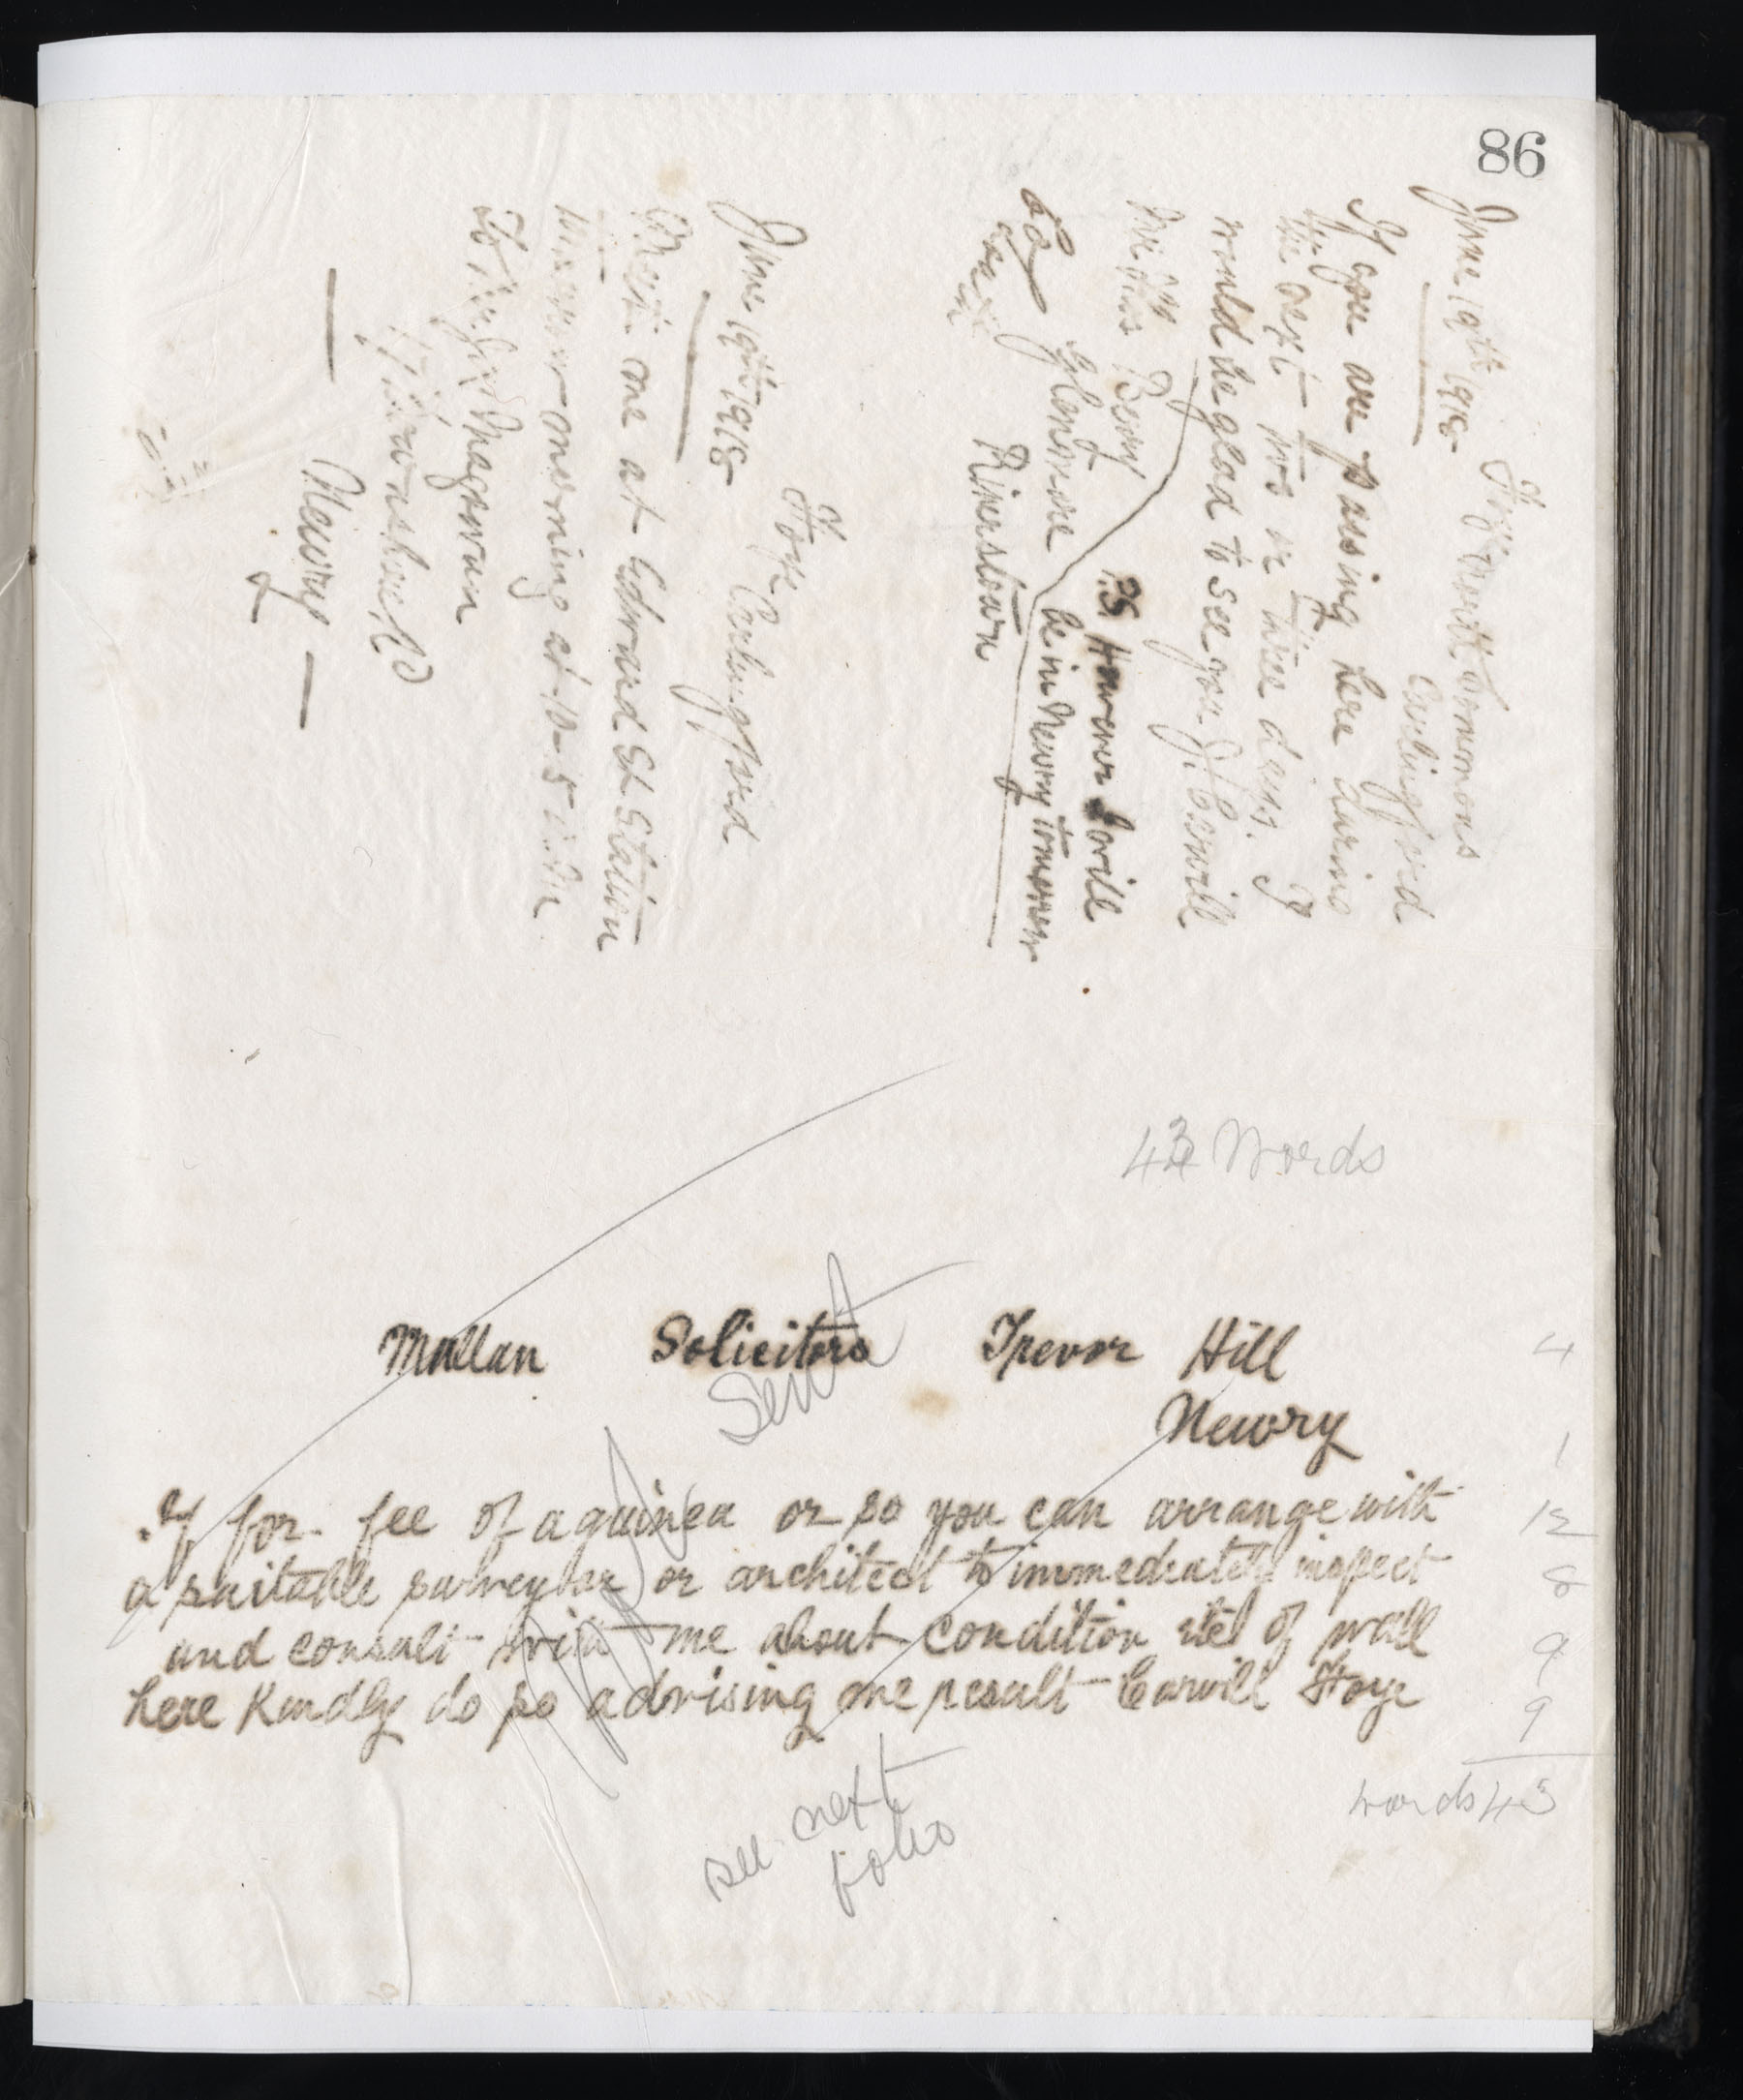 86
Omeath Commons
Carlingford
June 19th 1918
If you are passing here during
the next two or three days. I
would be glad to see you J. Carvill
Mr Thos Berry
Glenmore
Riverstown
P.S However I will
be in Newry tomorrow
Carlingford
June 19th 1918
Meet me at Edward St Station
tomorrow morning at 10-5
Magowan
Newry
43 Words
Sent
Mullan Solicitors Trevor Hill 4
Newry 1
If for fee of a guinea or so you can arrange with 12
a suitable surveyor or architect to immediately inspect 8
and consult with me about condition etc of wall 9
here Kindly do so advising me result Carvill 9
words 43
see next
folio